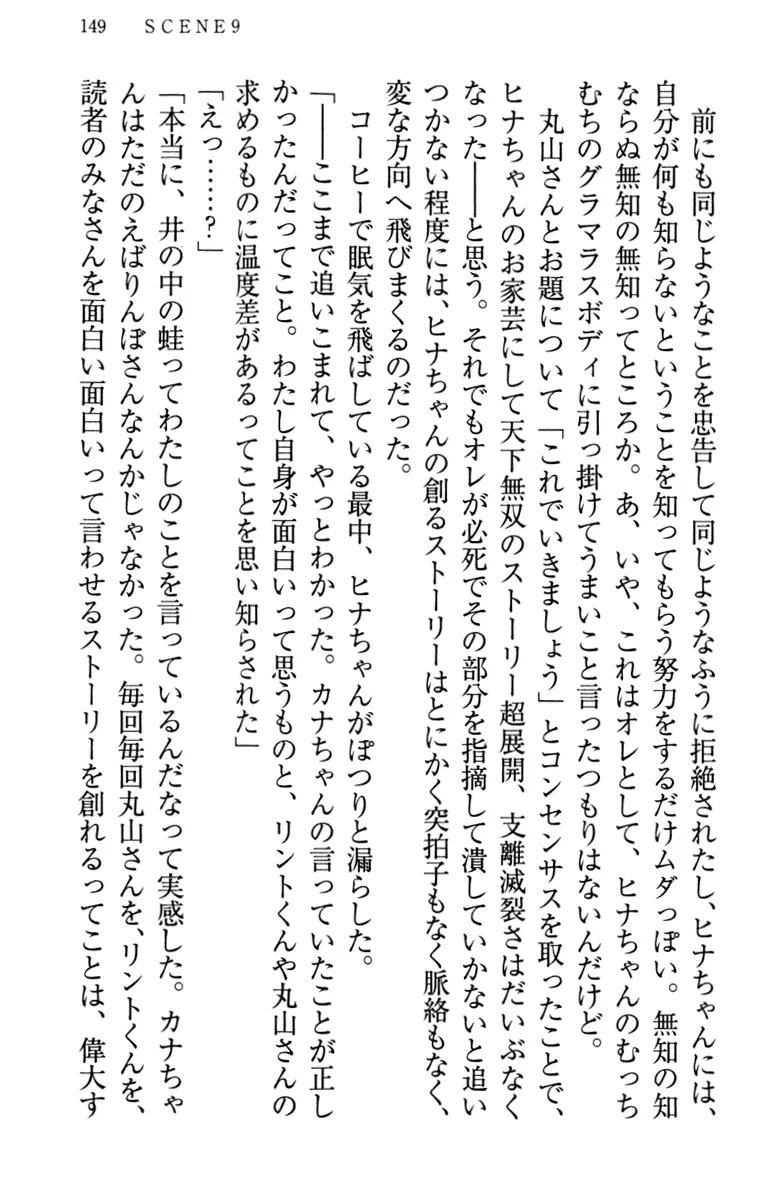 149　SCENE9
　前にも同じようなことを忠告して同じようなふうに拒絶されたし、ヒナちゃんには、
自分が何も知らないということを知ってもらう努力をするだけムダっぽい。無知の知
ならぬ無知の無知ってところか。あ、いや、これはオレとして、ヒナちゃんのむっち
むちのグラマラスボディに引っ掛けてうまいこと言ったつもりはないんだけど。
　丸山さんとお題について「これでいきましょう」とコンセンサスを取ったことで、
ヒナちゃんのお家芸にして天下無双のストーリー超展開、支離滅裂さはだいぶなく
なった――と思う。それでもオレが必死でその部分を指摘して潰していかないと追い
つかない程度には、ヒナちゃんの創るストーリーはとにかく突拍子もなく脈絡もなく、
変な方向へ飛びまくるのだった。
　コーヒーで眠気を飛ばしている最中、ヒナちゃんがぽつりと漏らした。
「――ここまで追いこまれて、やっとわかった。カナちゃんの言っていたことが正し
かったんだってこと。わたし自身が面白いって思うものと、リントくんや丸山さんの
求めるものに温度差があるってことを思い知らされた」
「えっ……？」
「本当に、井の中の蛙ってわたしのことを言っているんだなって実感した。カナちゃ
んはただのえばりんぼさんなんかじゃなかった。毎回毎回丸山さんを、リントくんを、
読者のみなさんを面白い面白いって言わせるストーリーを創れるってことは、偉大す